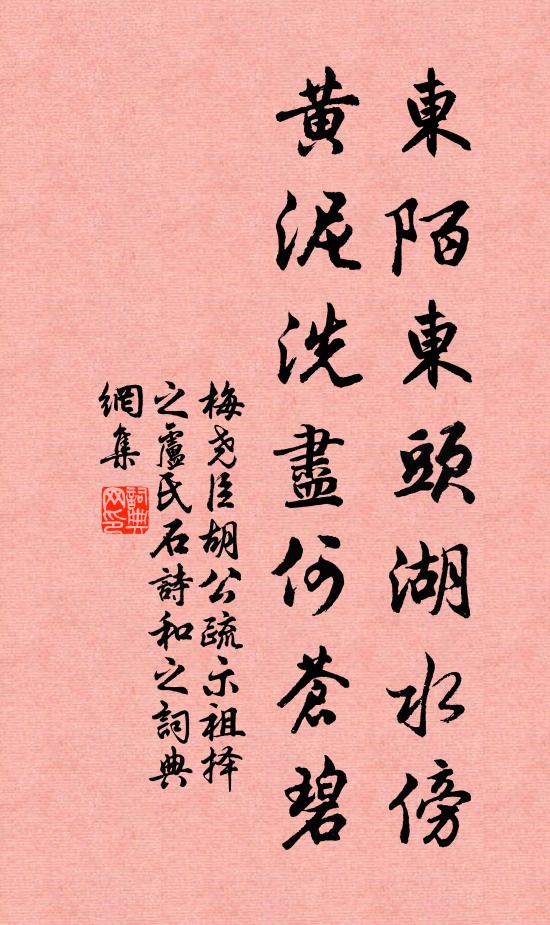 東陌東頭湖水傍
黃泥洗盡何蒼碧
梅尧臣胡公疏示祖择
之盧氏石詩和之詞典
網集
詞典
网印